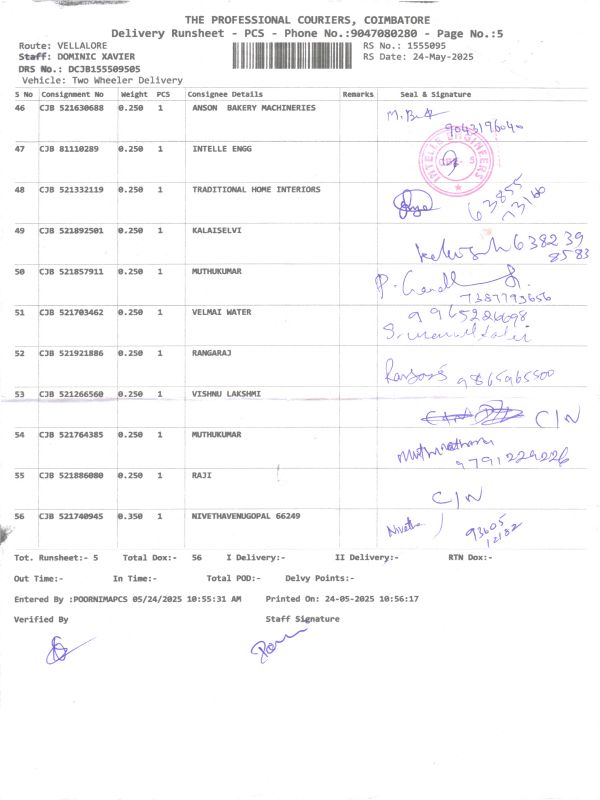 THE PROFESSIONAL COURIERS, COIMBATORE
Delivery Runsheet - PCS - Phone No.:9047080280 - Page No.:5
Route: VELLALORE RS No.: 1555095
Staff: DOMINIC XAVIER RS Date: 24-May-2025
DRS No.: DCJB155509505
Vehicle: Two Wheeler Delivery
S No Consignment No Weight PCS Consignee Details Remarks Seal & Signature
46 CJB 521630688 0.250 1 ANSON BAKERY MACHINERIES
9043196040
47 CJB 81110289 0.250 1 INTELLE ENGG
INTELLE ENGINEERS
48 CJB 521332119 0.250 1 TRADITIONAL HOME INTERIORS
63855
73160
49 CJB 521892501 0.250 1 KALAISELVI
638239
8583
50 CJB 521857911 0.250 1 MUTHUKUMAR
7387793656
51 CJB 521703462 0.250 1 VELMAI WATER
9965226698
52 CJB 521921886 0.250 1 RANGARAJ
9865965500
53 CJB 521266560 0.250 1 VISHNU LAKSHMI
C/N
54 CJB 521764385 0.250 1 MUTHUKUMAR
9791229226
55 CJB 521886080 0.250 1 RAJI
C/N
56 CJB 521740945 0.350 1 NIVETHAVENUGOPAL 66249
Nivetha 93605
12182
Tot. Runsheet:- 5 Total Dox:- 56 I Delivery:- II Delivery:- RTN Dox:-
Out Time:- In Time:- Total POD:- Delvy Points:-
Entered By :POORNIMAPCS 05/24/2025 10:55:31 AM Printed On: 24-05-2025 10:56:17
Verified By Staff Signature